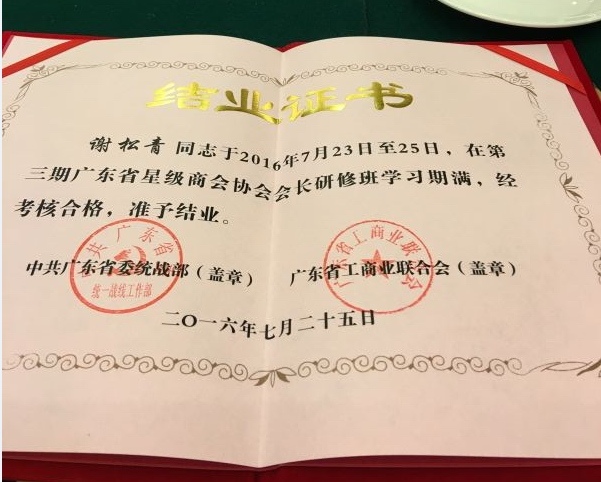 结业证书
谢松青 同志于2016年7月23日至25日，在第
三期广东省星级商会协会会长研修班学习期满，经
考核合格，准予结业。
中共广东省委统战部（盖章） 广东省工商业联合会（盖章）
中共广东省
统一战线工作部
广东省工商业联合会
二〇一六年七月二十五日